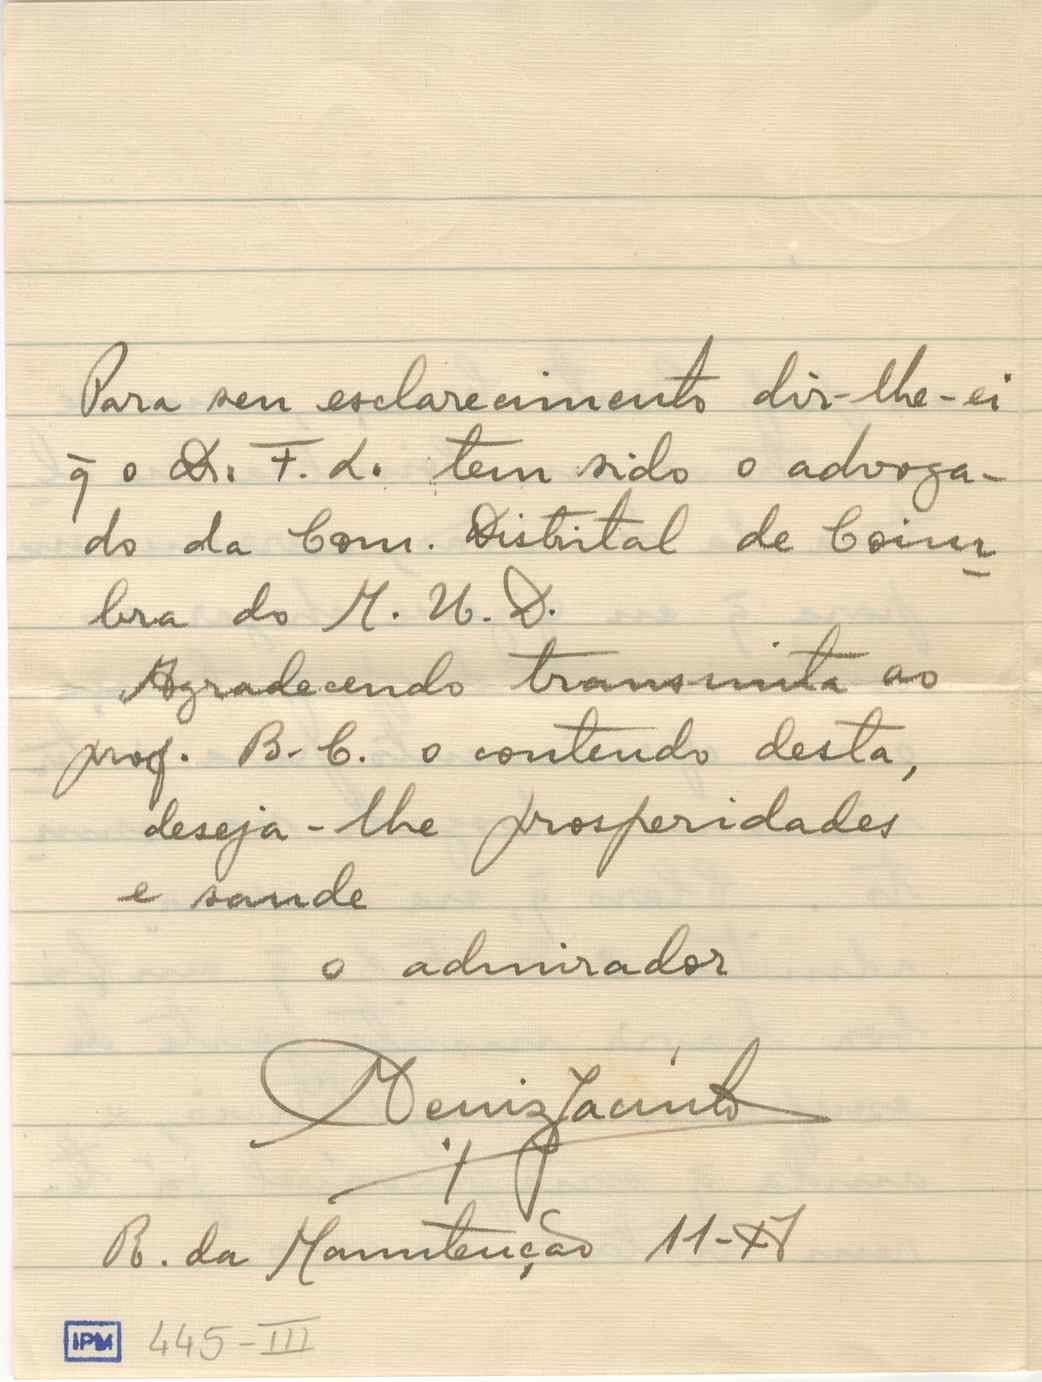 Para seu esclarecimento dir-lhe-ei
q̄ o Dr. F. L. tem sido o advoga-
do da Com. Distrital de Coim
bra do M. U. D.
Agradecendo transmita ao
prof. B-C. o conteudo desta,
deseja-lhe prosperidades
e saude
o admirador
Deniz Jacinto
R. da Manutenção 11-
IPM 445-III